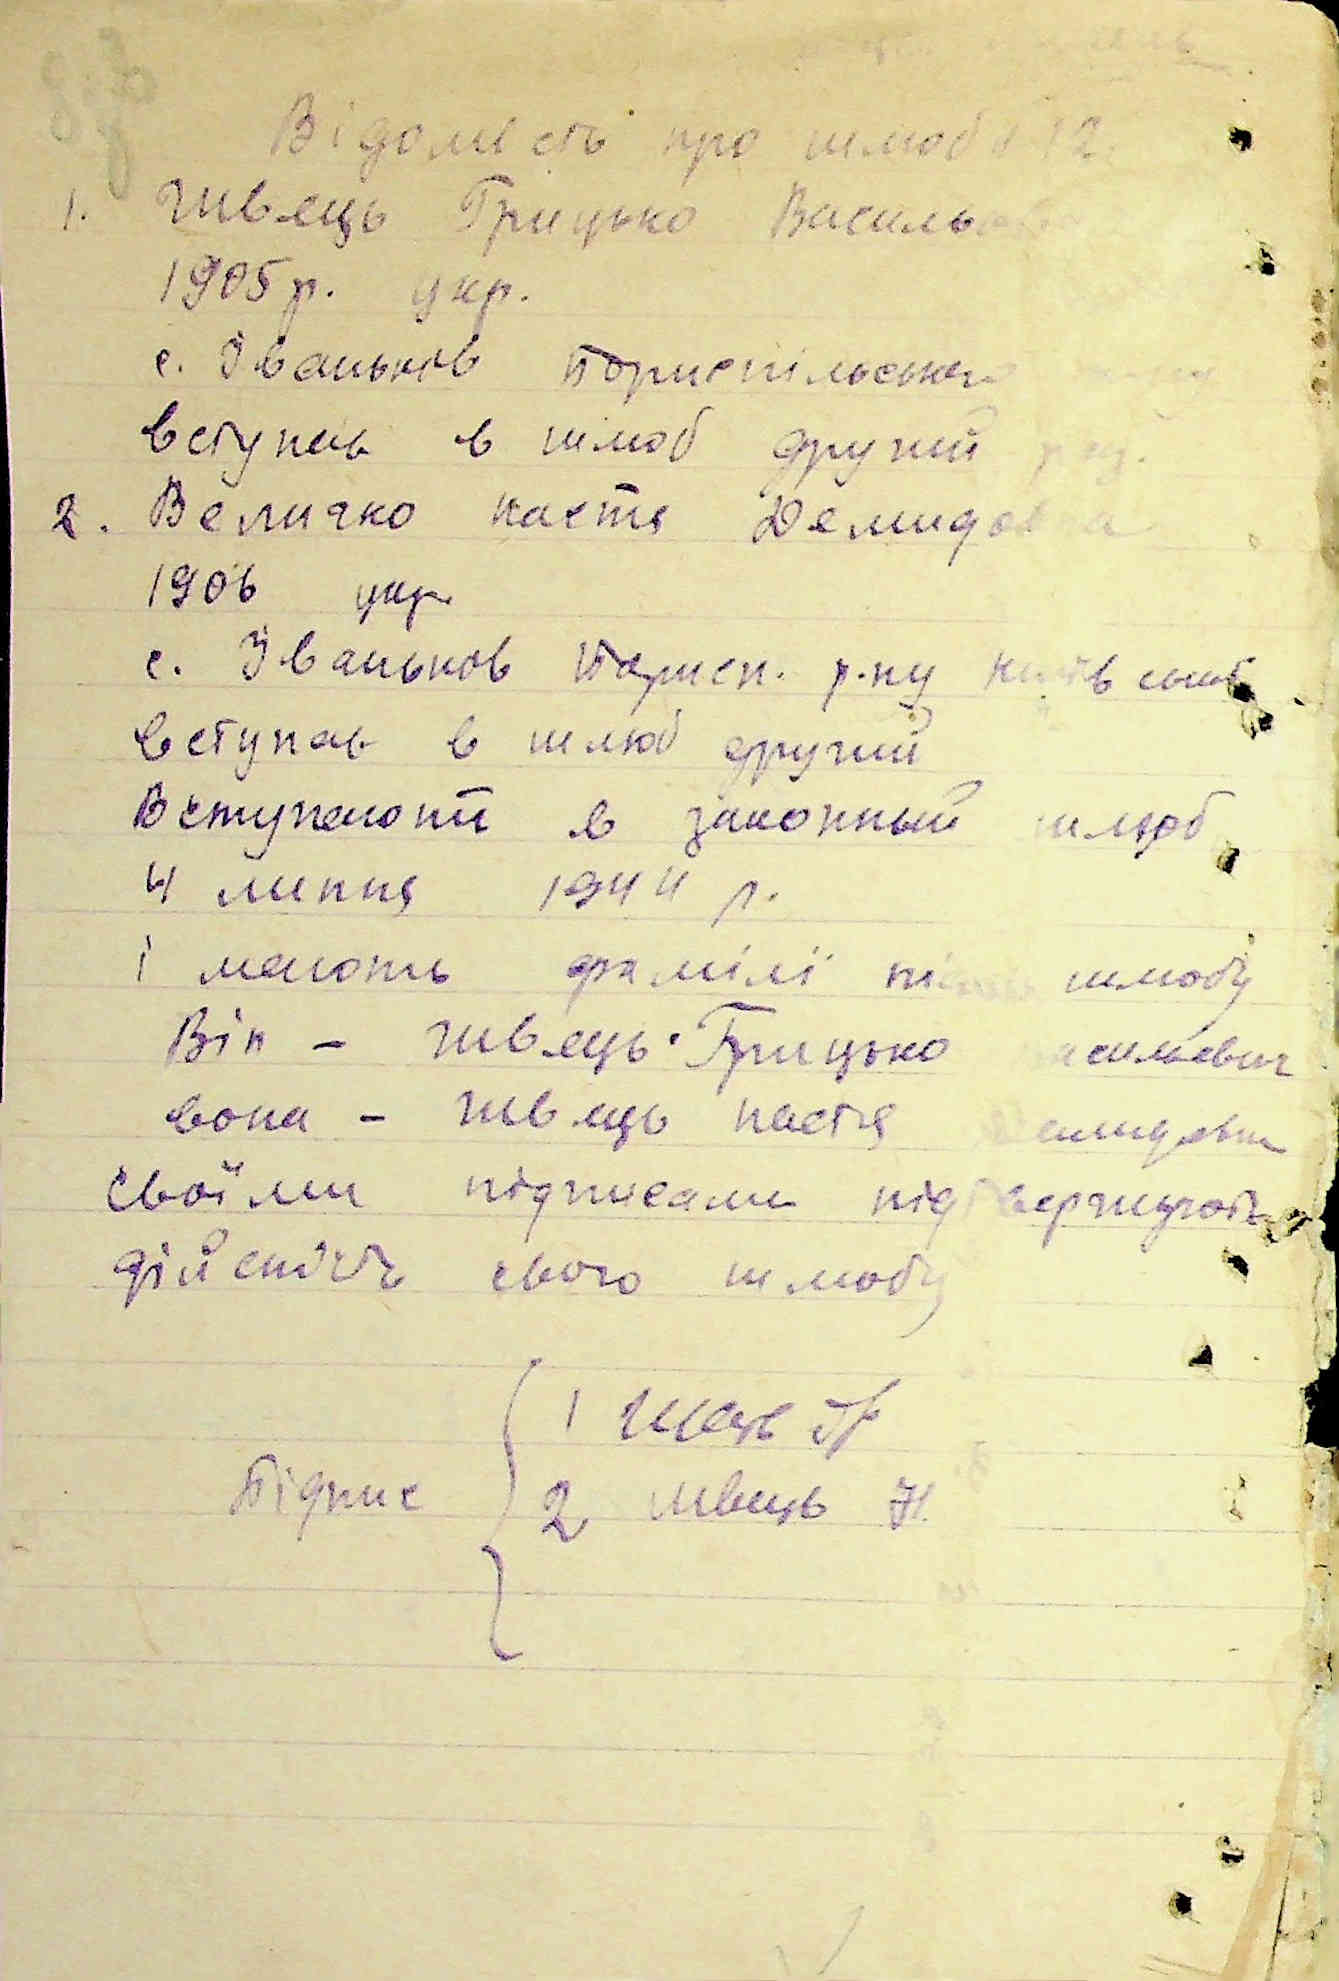 Відомість про шлюб № 12.
1. Швець Грицько Василь
1905 р. укр.
с. Іваньків Бориспільського
вступає в шлюб другий раз.
2. Величко Настя Демидовна
1906 укр
с. Іваньков Борисп. р-ну Київської
вступає в шлюб другий
Вступають в законный шлюб
4 липня 1944 р.
і мають фамілії після шлюбу
Він - Швець Грицько Васильевич
вона - Швець Настя Демидовна
своїми підписами підтвержують
дійсність свого шлюбу
Підпис
1 Швець Гр
2 Швець Н.